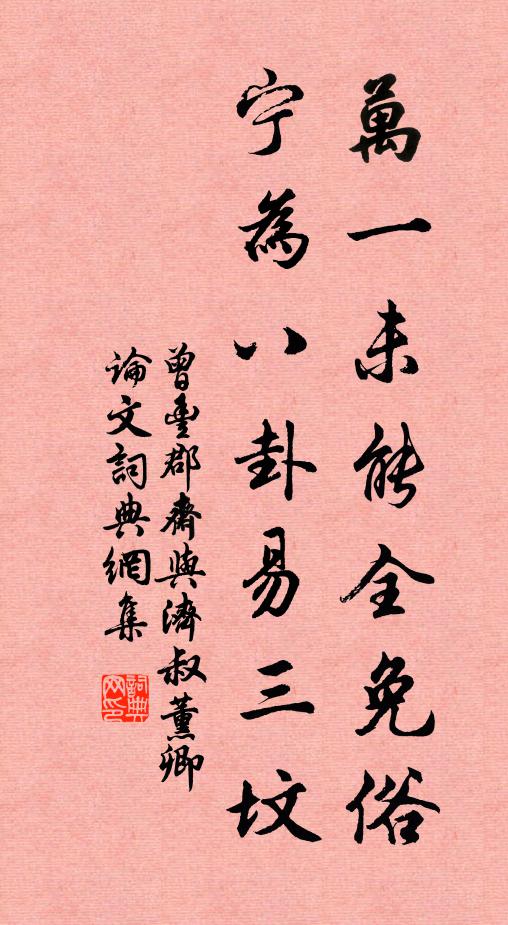 萬一未能全免俗
宁為八卦易三墳
曾豊郡齋與濟叔薰卿
論文詞典網集
詞典
网印